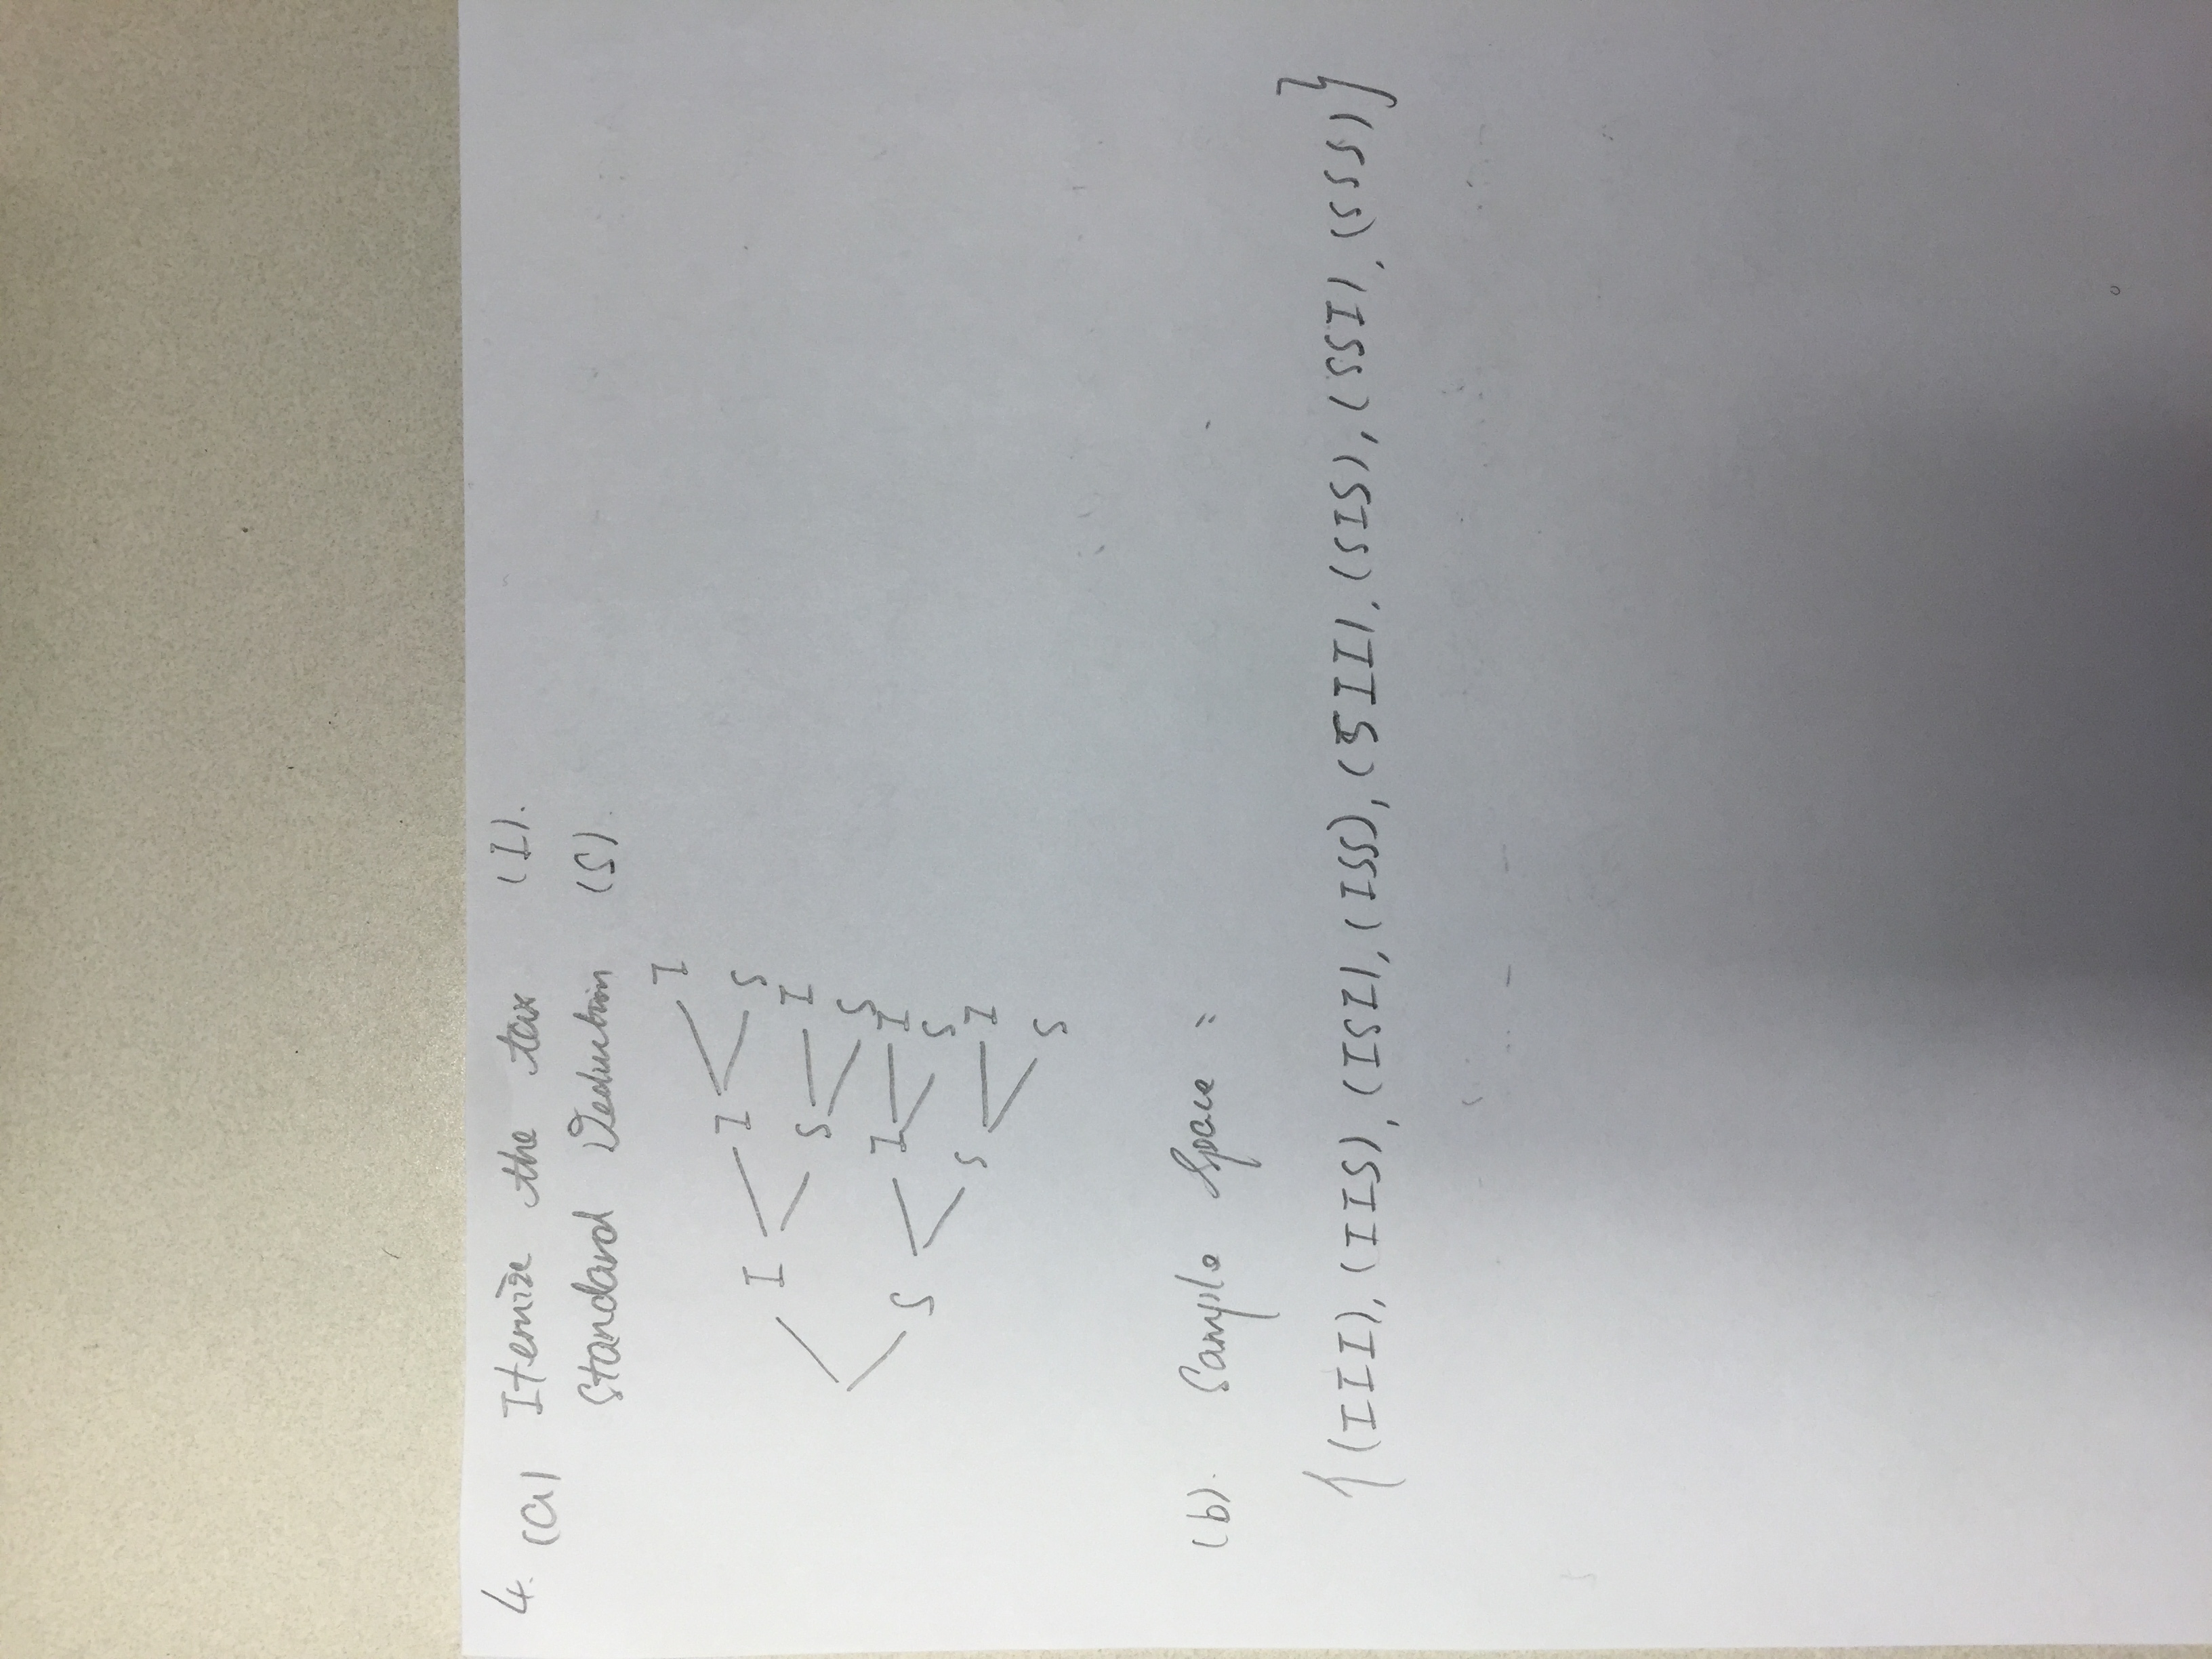 4. (a) Itemize the tax (I).
Standard Deduction (S).
I
I
S
I
S
I
S
I
I
S
S
S
I
S
(b). Sample Space :
{(III), (IIS), (ISI), (ISS), (SII), (SIS), (SSI), (SSS)}